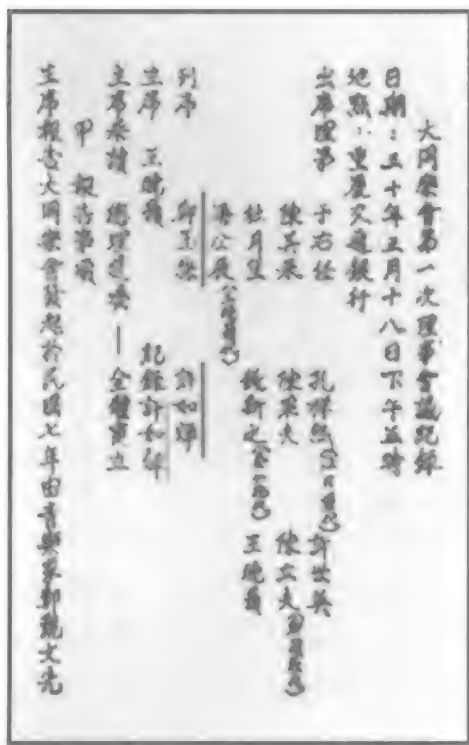 大同樂會第一次理事會議記錄
日期：三十年三月十八日下午五時
地點：重慶交通銀行
出席理事 于右任 孔祥熙 許世英
陳其采 陳果夫 陳立夫
杜月笙 錢新之 王曉籟
潘公展
列席 鄭玉蓀 許如輝
主席 王曉籟 記錄許如輝
主席恭讀 總理遺囑—全體肅立
甲 報告事項
主席報告大同樂會發起於民國七年由音樂家鄭覲文先